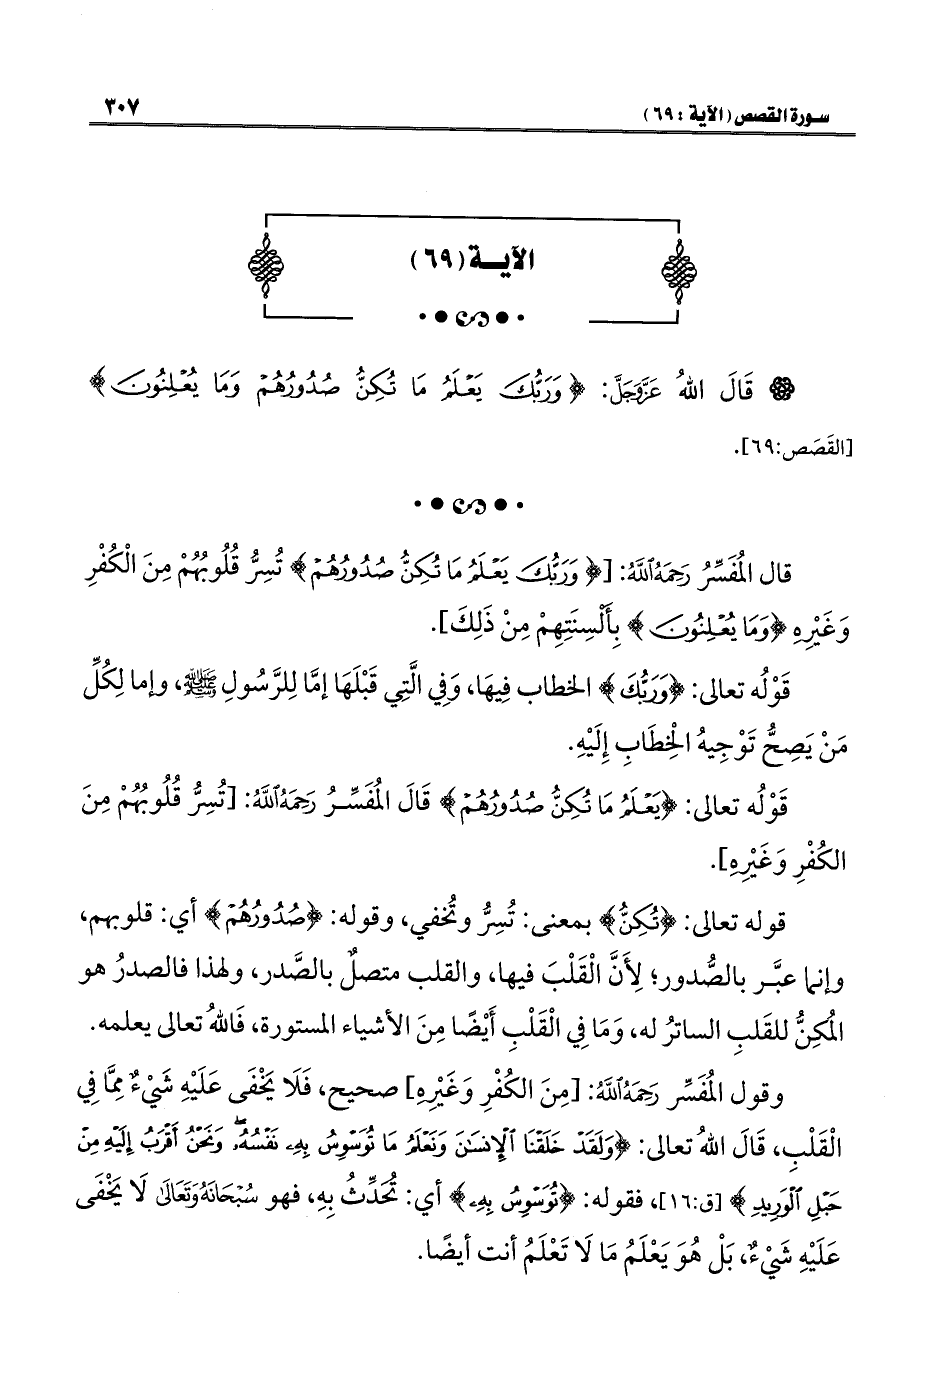 سورة القصص (الآية: ٦٩) ٣٠٧
الآيـة (٦٩)
قَالَ اللهُ عَزَّوَجَلَّ: ﴿وَرَبُّكَ يَعْلَمُ مَا تُكِنُّ صُدُورُهُمْ وَمَا يُعْلِنُونَ﴾
[القَصَص:٦٩].
قال المُفَسِّرُ رَحِمَهُ اللَّهُ: [﴿وَرَبُّكَ يَعْلَمُ مَا تُكِنُّ صُدُورُهُمْ﴾ تُسِرُّ قُلُوبُهُمْ مِنَ الْكُفْرِ
وَغَيْرِهِ ﴿وَمَا يُعْلِنُونَ﴾ بِأَلْسِنَتِهِمْ مِنْ ذَلِكَ].
قَوْلُه تعالى: ﴿وَرَبُّكَ﴾ الخطاب فِيهَا، وَفِي الَّتِي قَبْلَهَا إمَّا لِلرَّسُولِ ﷺ، وإما لِكُلِّ
مَنْ يَصِحُّ تَوْجِيهُ الْخِطَابِ إِلَيْهِ.
قَوْلُه تعالى: ﴿يَعْلَمُ مَا تُكِنُّ صُدُورُهُمْ﴾ قَالَ المُفَسِّرُ رَحِمَهُ اللَّهُ: [تُسِرُّ قُلُوبُهُمْ مِنَ
الكُفْرِ وَغَيْرِهِ].
قوله تعالى: ﴿تُكِنُّ﴾ بمعنى: تُسِرُّ وتُخفي، وقوله: ﴿صُدُورُهُمْ﴾ أي: قلوبهم،
وإنما عبَّر بالصُّدور؛ لِأَنَّ الْقَلْبَ فيها، والقلب متصلٌ بالصَّدر، ولهذا فالصدرُ هو
المُكِنُّ للقَلبِ الساترُ له، وَمَا فِي الْقَلْبِ أَيْضًا مِنَ الأشياء المستورة، فَاللهُ تعالى يعلمه.
وقول المُفَسِّر رَحِمَهُ اللَّهُ: [مِنَ الكُفْرِ وَغَيْرِهِ] صحيح، فَلَا يَخْفَى عَلَيْهِ شَيْءٌ مِمَّا فِي
الْقَلْبِ، قَالَ اللهُ تعالى: ﴿وَلَقَدْ خَلَقْنَا ٱلْإِنسَٰنَ وَنَعْلَمُ مَا تُوَسْوِسُ بِهِۦ نَفْسُهُۥ ۖ وَنَحْنُ أَقْرَبُ إِلَيْهِ مِنْ
حَبْلِ ٱلْوَرِيدِ﴾ [ق:١٦]، فقوله: ﴿تُوَسْوِسُ بِهِۦ﴾ أي: تُحَدِّثُ بِهِ، فهو سُبْحَانَهُ وَتَعَالَى لَا يَخْفَى
عَلَيْهِ شَيْءٌ، بَلْ هُوَ يَعْلَمُ مَا لَا تَعْلَمُ أنت أيضًا.